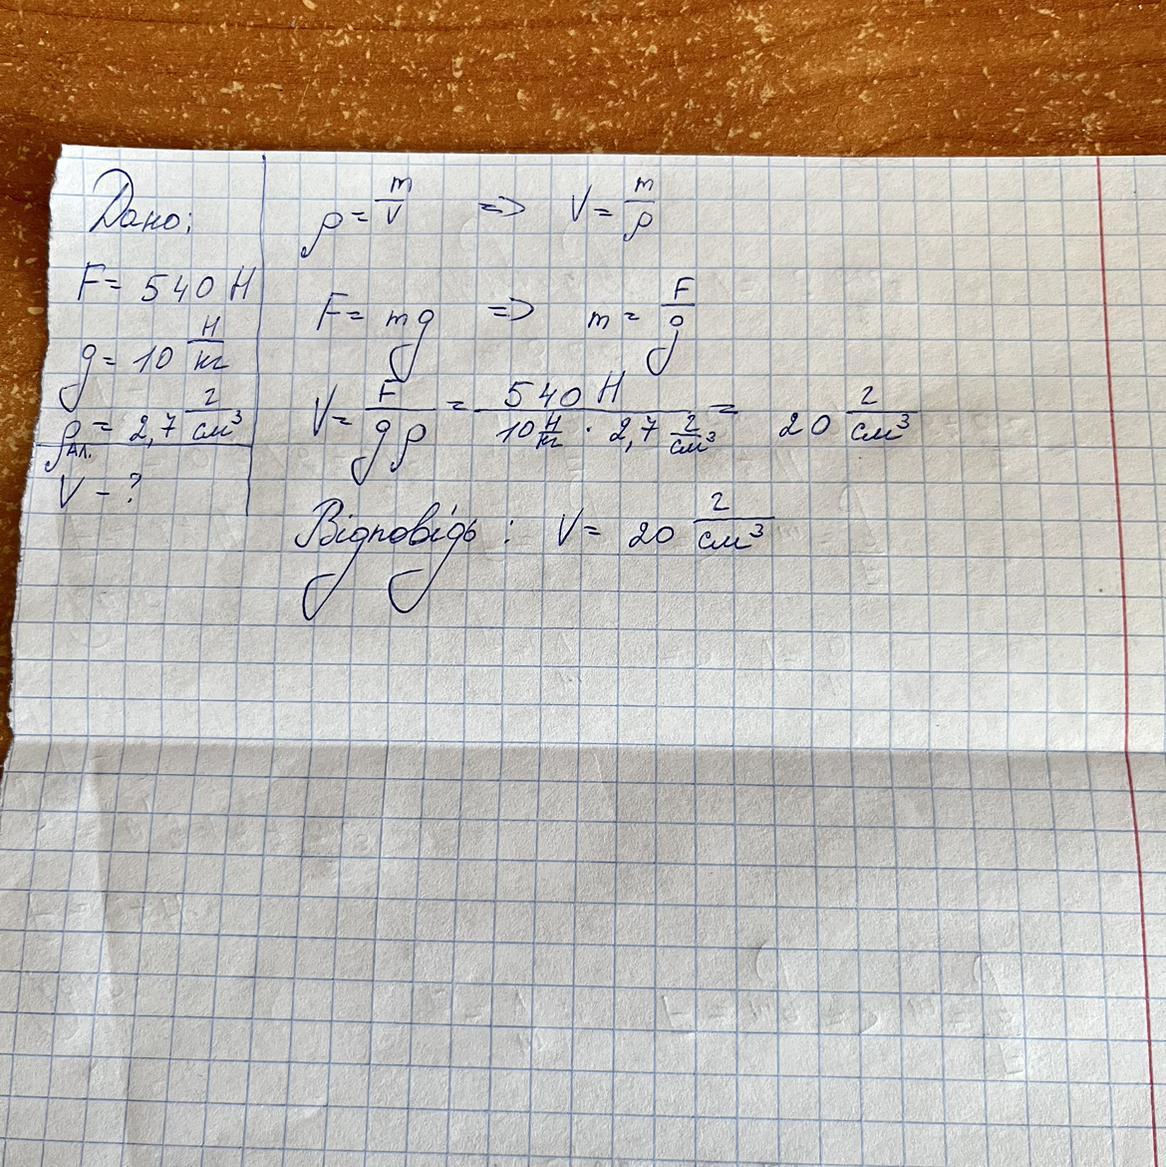 Дано:
F = 540 Н
g = 10 Н/кг
ρ Ал. = 2,7 г/см³
V - ?
ρ = m/V => V = m/ρ
F = mg => m = F/g
V = F/gρ = 540 Н / 10 Н/кг · 2,7 г/см³ = 20 г/см³
Відповідь: V = 20 г/см³